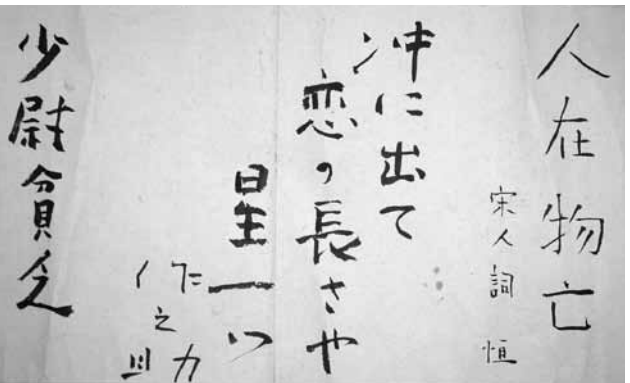 人在物亡
宋人詞 恒
沖に出て
恋の長さや
星一つ
作之助
少尉貧乏